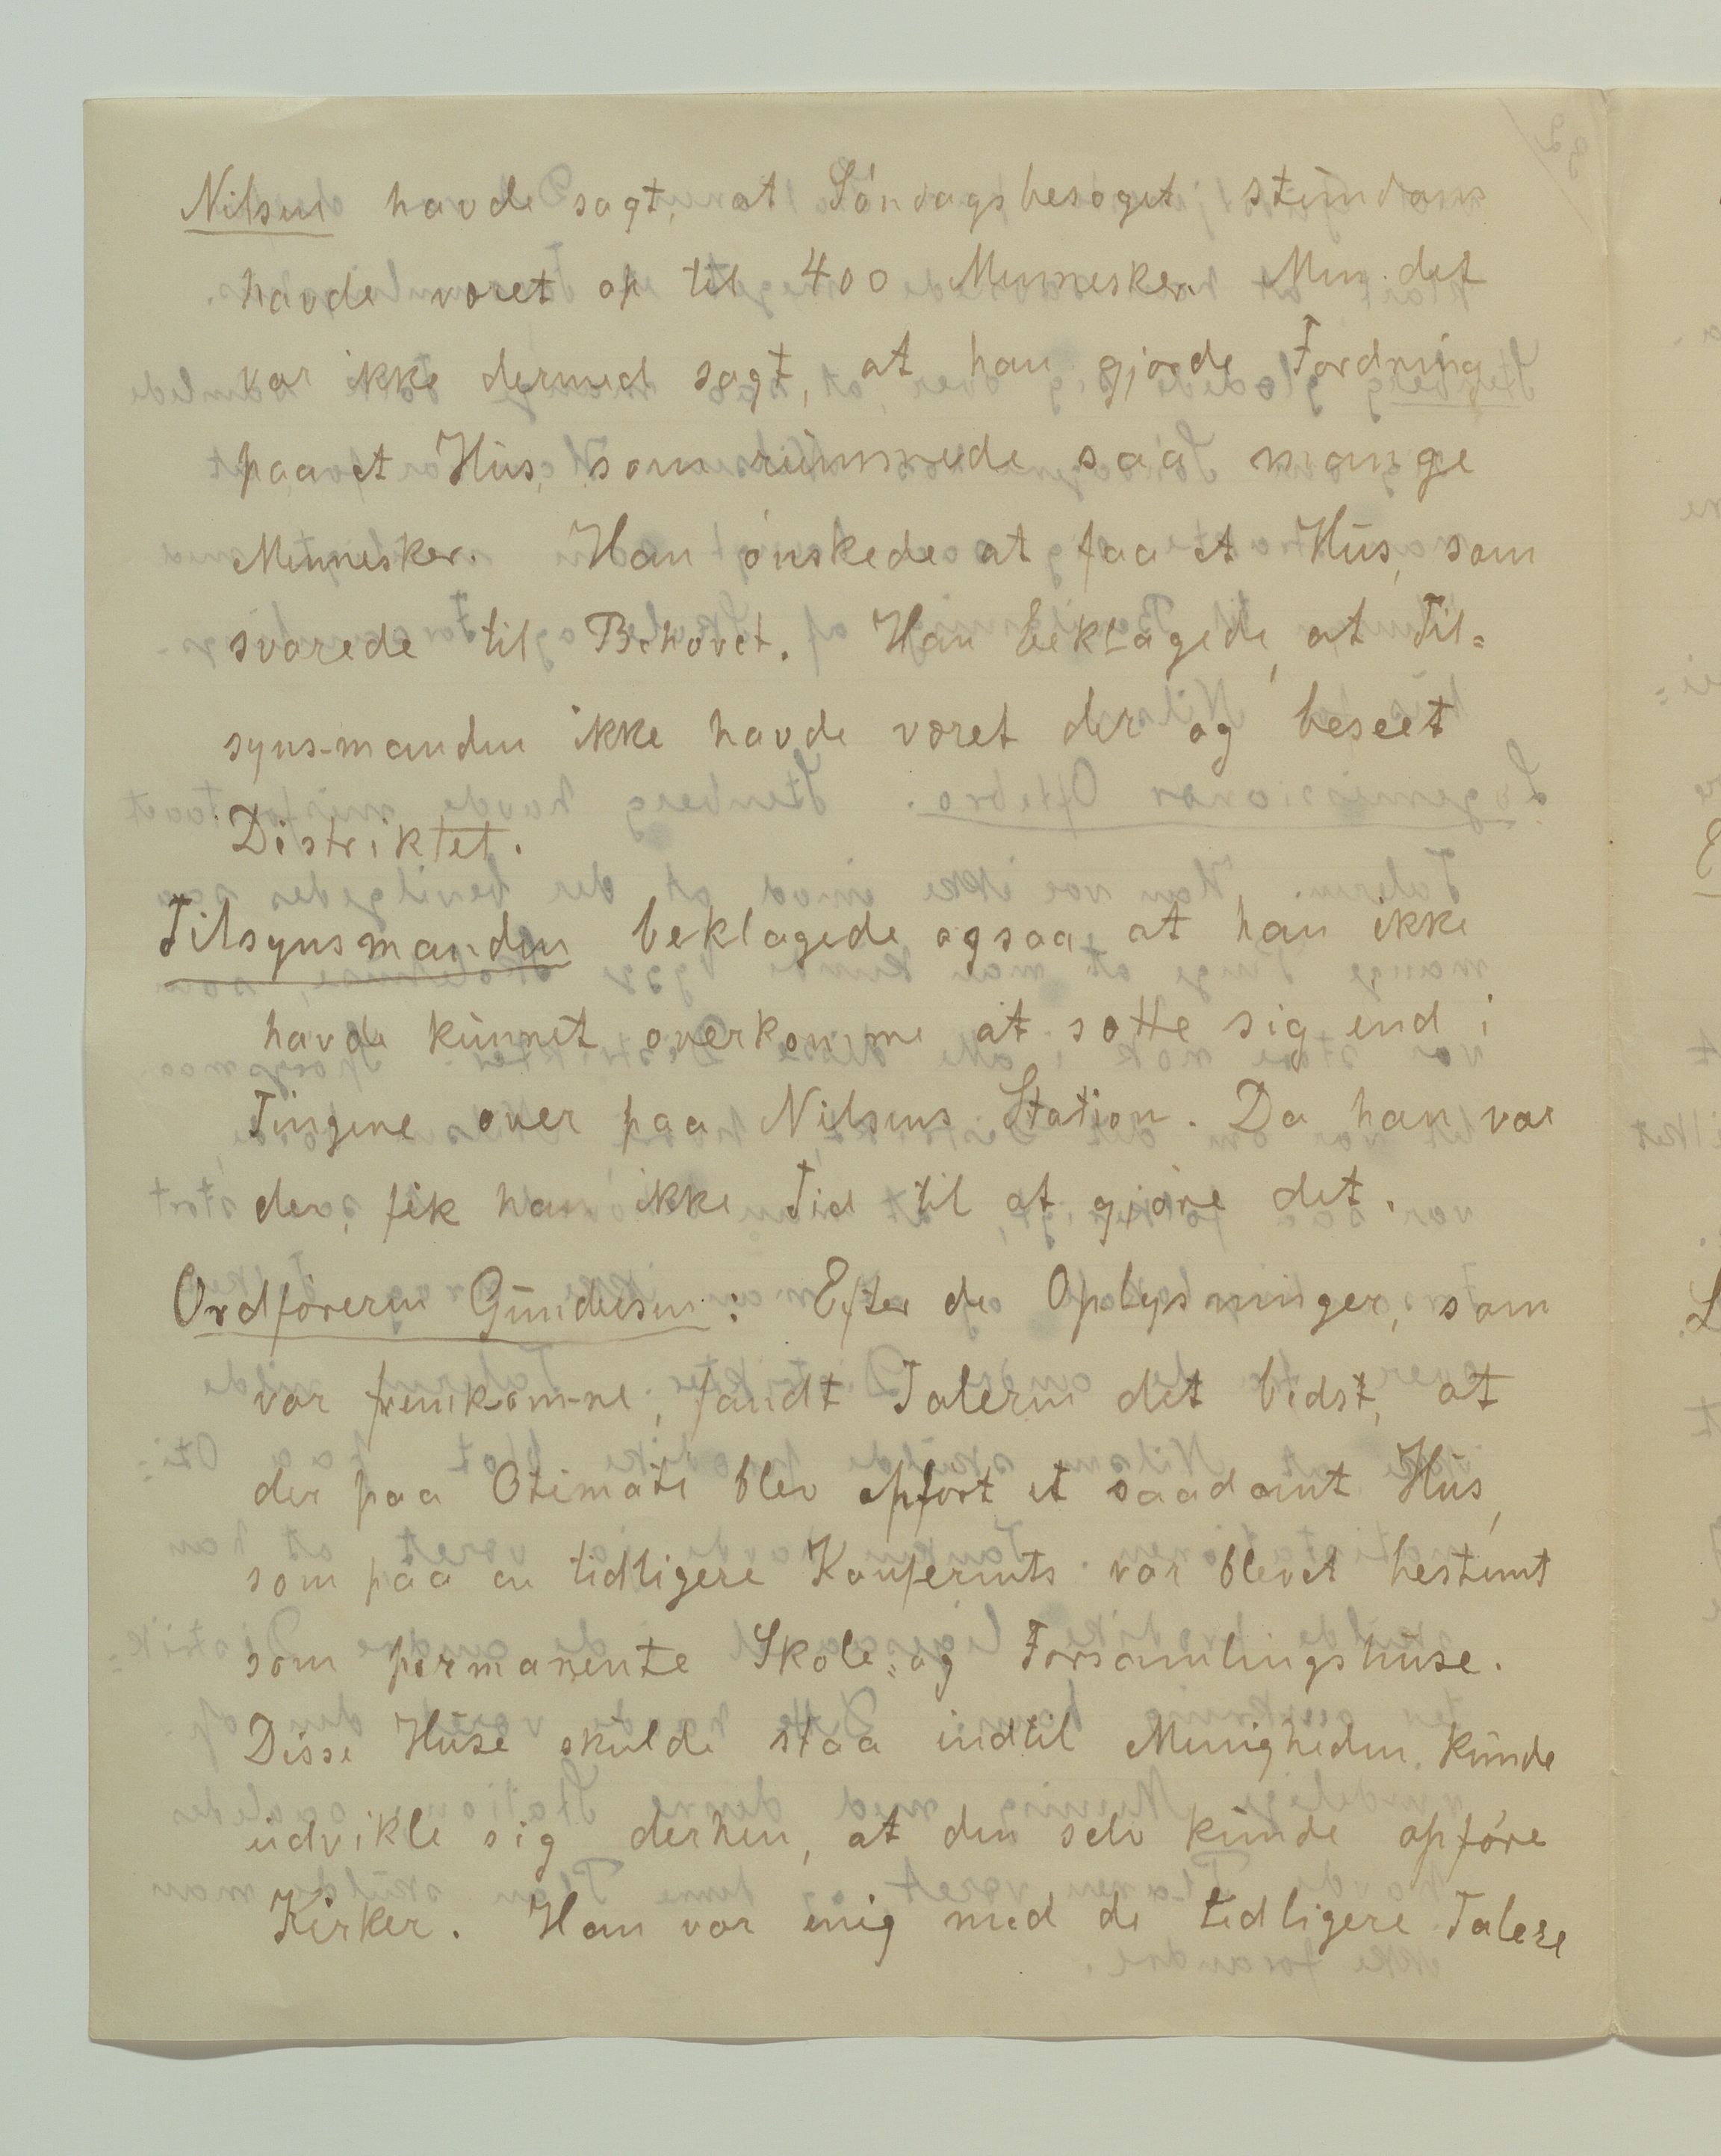 Nilsen havde sagt, at Söndagsbesøget stundom
havde været op til 400 Mennesker. Men det
var ikke dermed sagt, at han gjorde Fordring
paa et Hus, som rummede saa mange
Mennesker. Han ónskede at faa et Hus, som
svarede til Behovet. Han beklagede, at Til=
synsmanden ikke havde været der og beseet
Distriktet.
Tilsynsmanden beklagede ogsaa, at han ikke
havde kunnet overkomme at sætte sig ind i
Tingene over paa Nilsens Station. Da han var
der, fik han ikke Tid til at gjöre det.
Ordföreren Gundersen: Efter de Oplysninger, som
var fremkomne, fandt Taleren det bedst, at
der paa Otimati blev opført et saadant Hus,
som paa en tidligere Konferents var blevet bestemt
som permanente Skole= og Forsamlingshuse.
Disse Huse skulde staa indtil Menigheden kunde
udvikle sig derhen, at den selv kunde opföre
Kirker. Han var enig med de tidligere Talere